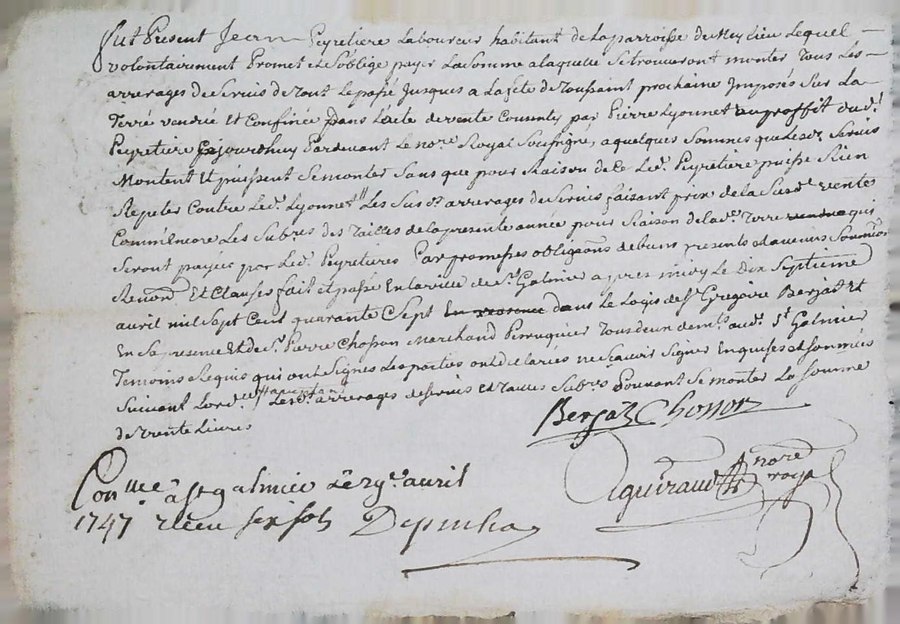 fut Present Jean Peyretiere Laboureur habitant de la parroisse de Meylieu Lequel
volontairement Promet et s'oblige payer La somme a laquelle se trouveront monter tous Les
arrerages de servis de tout Le passé Jusques a La fete de toussaint prochaine Imposés sur La
Terre vendue Et Confinée dans L'acte de vente Convenu par Pierre Lyonnet au proffit dud.
Peyretiere Cejourdhuy Pardevant Le nore. Royal Soussigné, a quelques Sommes que Lesd. Servis
Montent Et puissent se monter Sans que pour Raison de ce Led. Peyretiere puisse Rien
Repeter Contre Led. Lyonnet Les Susd. arrerages de Servis faisant prix de la Susd. vente
Comm'Encore Les Subres. des Tailles de la presente année pour Raison de lad. Terre vendue qui
Seront payées par Led. Peyretieres Car promesses obligeons de biens presents et avenirs Soumions
Renond. Et Clauses fait et passé En la ville de St. Galmier apres midy Le dix Septieme
avril mil Sept Cent quarante Sept En presence dans le Logis de Sr. Gregoire Berjat Et
En Sa presence Et de Sr. Pierre Chosson Marchand Perruquier Tous deux demts. aud. St Galmier
Temoins Requis qui ont Signés Les parties ont declarées ne Scavoir Signer Enquises et sommées
Suivant Lord. Lesd. arrerages de servis et tailles Subres. Pouvant Se monter La somme
de trente Livres
Berjat Chosson
Con lleé a st galmier Le 29e. avril
1747 Receu six sols Depinha
Aguiraud nore royal